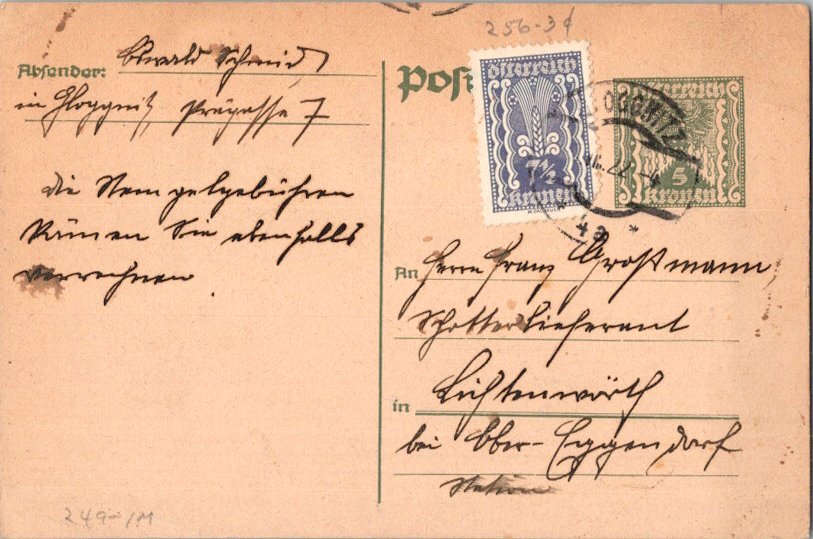 256-3¢
Absender: Oswald Schmid
in Gloggnitz
die Stempelgebühren
können Sie ebenfalls
verrechnen.
Post
Österreich
7½
kronen
OGGNITZ
22
4a *
Österreich
5
kronen
An Herrn Franz Großmann,
Schotterlieferant
in Lichtenwörth
bei Ober-Eggendorf
Station
249-/M